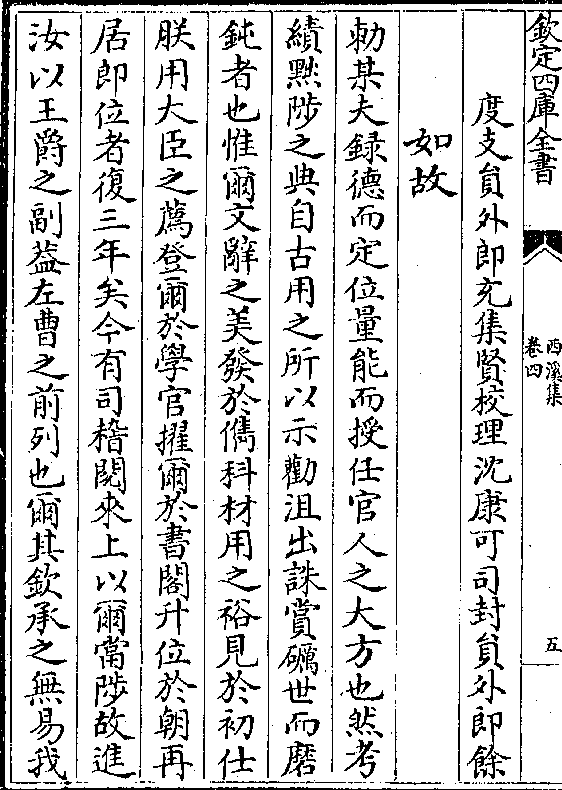 欽定四庫全書
西溪集
卷四
五
度支貟外郎充集賢校理沈康可司封貟外郎餘
如故
勅某夫録德而定位量能而授任官人之大方也然考
績黜陟之典自古用之所以示勸沮出誅賞礪世而磨
鈍者也惟爾文辭之美發於儁科材用之裕見於初仕
朕用大臣之薦登爾於學官擢爾於書閣升位於朝再
居郎位者復三年矣今有司稽閲來上以爾當陟故進
汝以王爵之副葢左曹之前列也爾其欽承之無易我